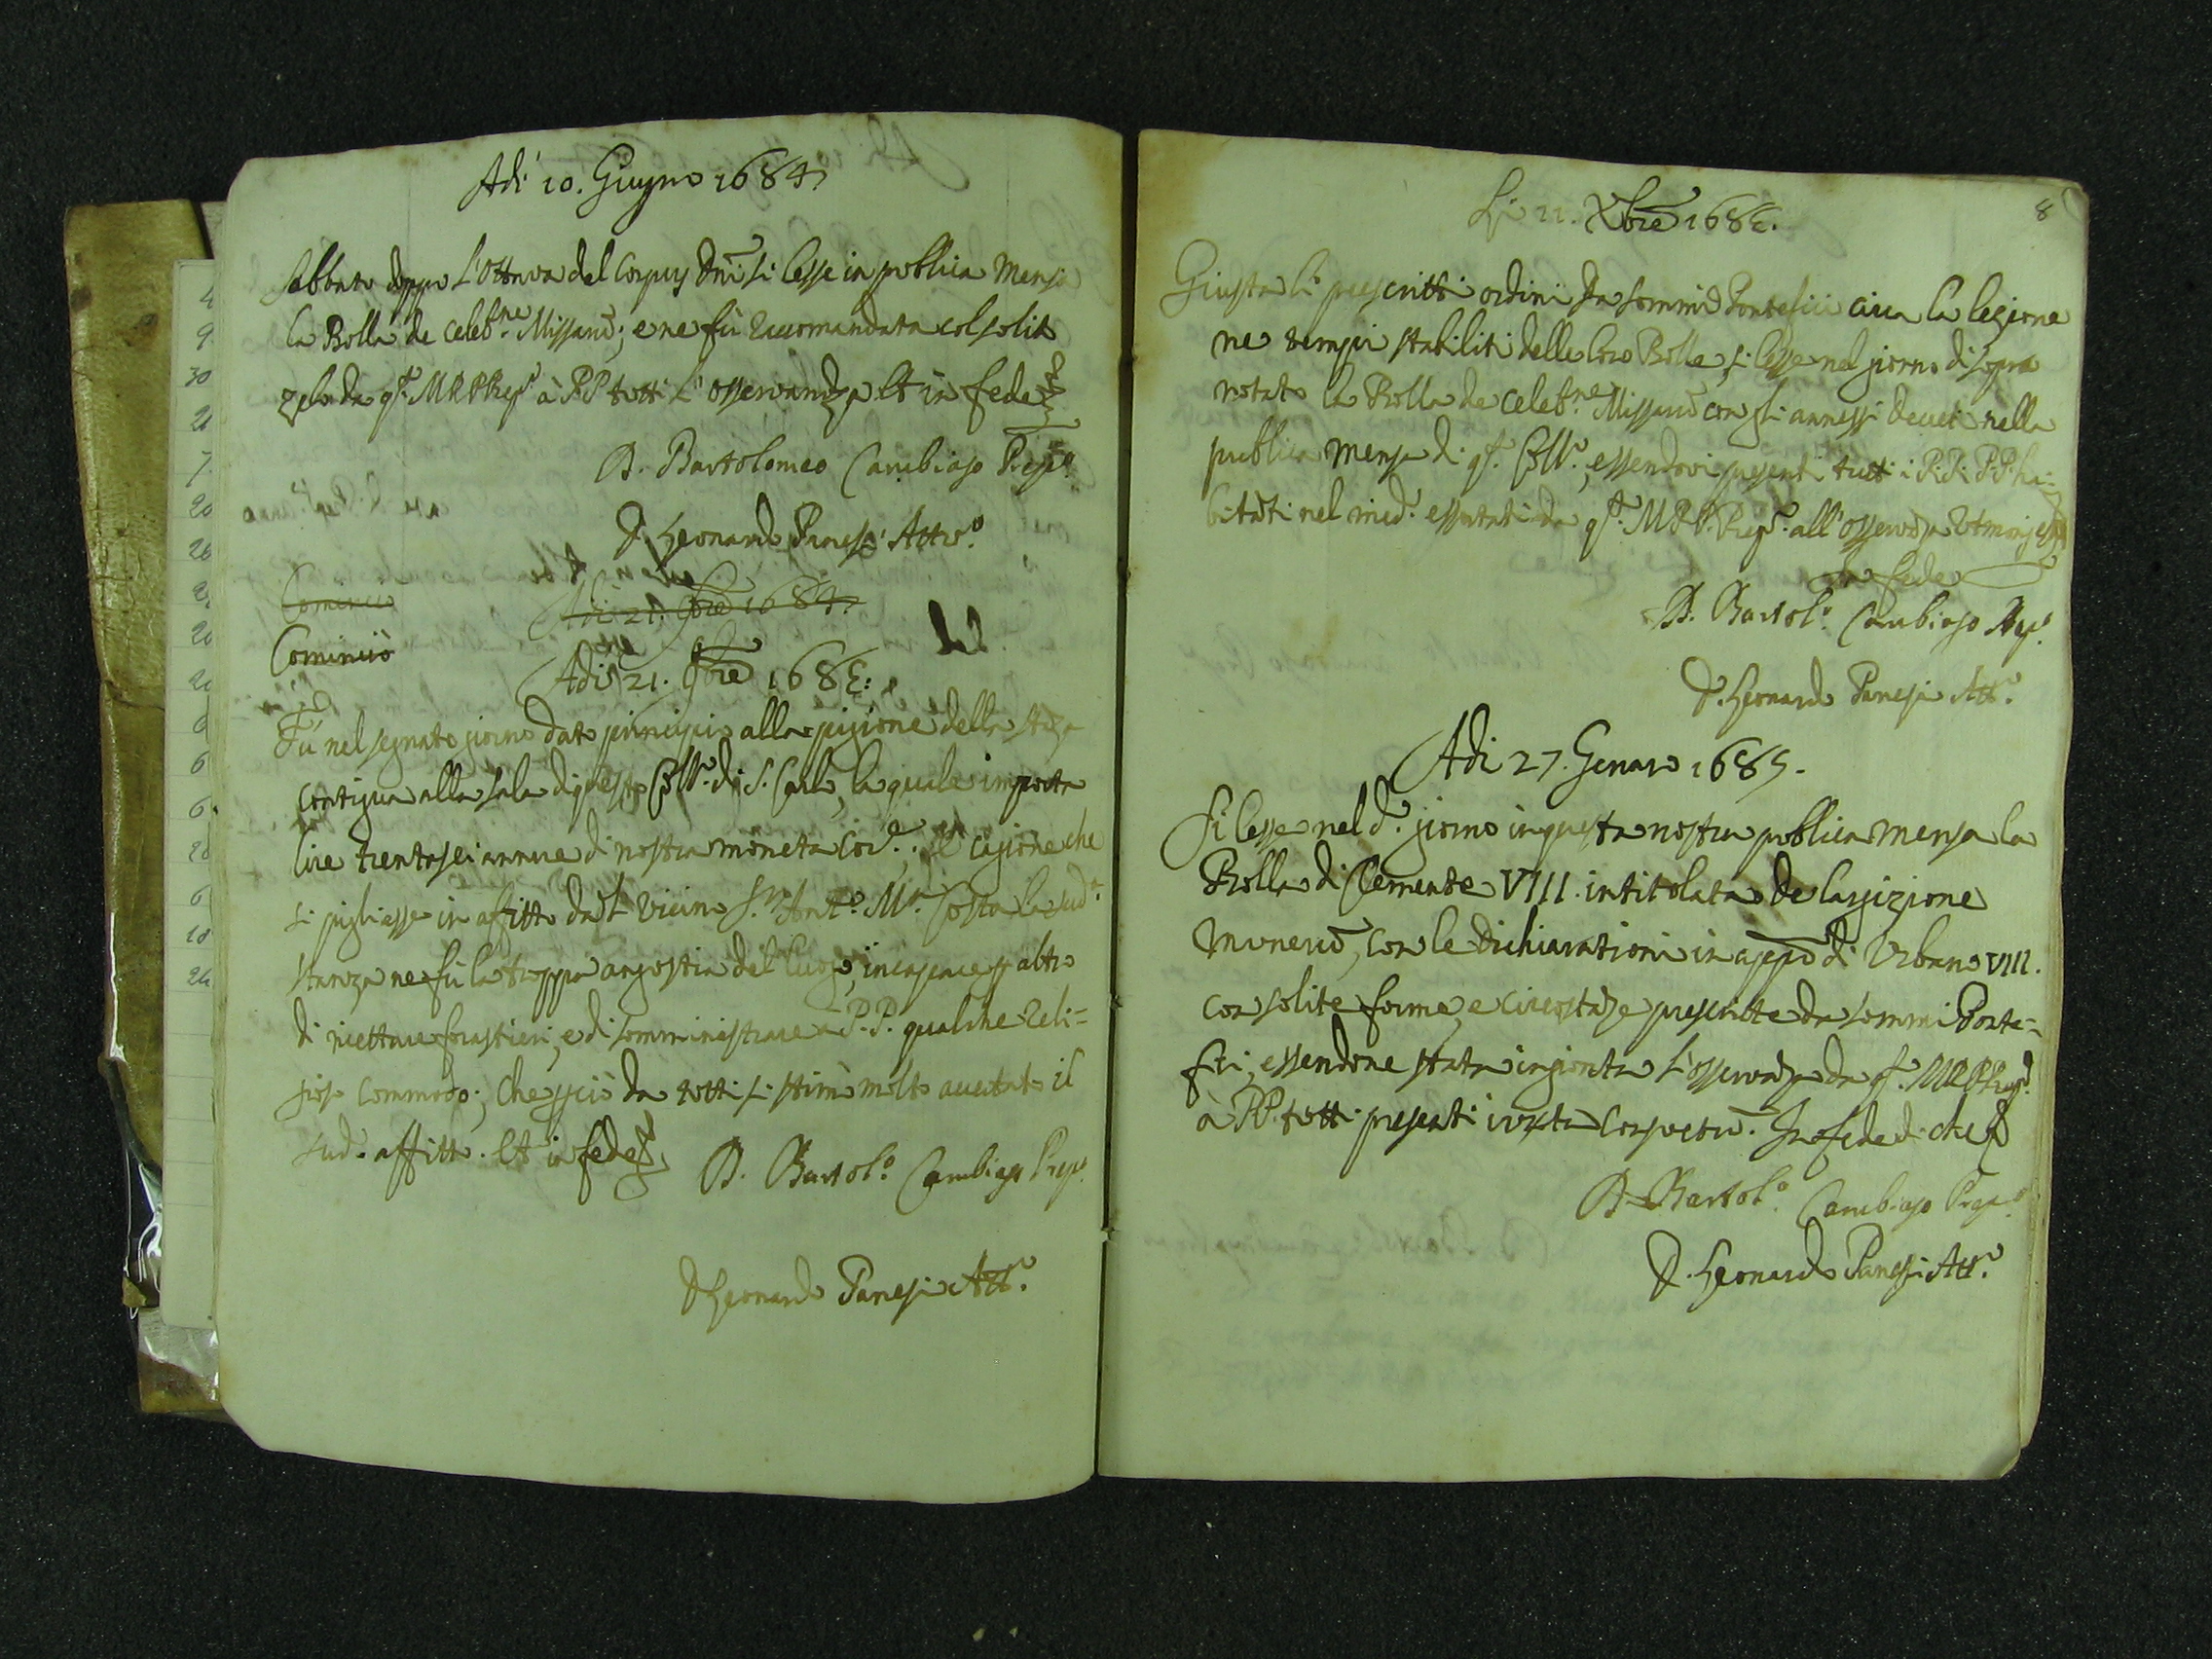 Adi 10. Giugno 1684
Sabbato doppo l'Ottava del Corpus Dni si lesse in publica Mensa
la Bolla de Celeb.ne Missarū; e ne fù raccomandata col solito
zelo da q.to M.R.P. Prep.o à PP. tutti l'osservanza et in fede
D. Bartolomeo Cambiaso Prep.o
D. Leonardo Panesi Att.o
Cominciò
Adi 21. 9bre 1684.
Cominciò
Adi 21. 9bre 168
Fù nel segnato giorno dato principio alla pigione della staza
contigua alla sala di questo Coll.o di S. Carlo, la quale importa
lire trentasei annue di nostra moneta La cagione che
si pigliasse in affitto dal vicino S.r Ant.o M.a Costa la sud.a
stanza ne fù la troppa angostia del luogo, incapace p altro
di ricettare forastieri, e di somministrare a P.P. qualche reli=
gioso commodo; che pciò da tutti si stimò molto accertato il
sud.o affitto. Et in fede
D. Bartol.o Cambiaso Prep.o
D. Leonardo Panesi Att.o
8
Li 11. Xbre 168
Giusta li prescritti ordini da Sommi Pontefici circa la lezione
ne tempi stabiliti delle loro Bolle, si lesse nel giorno di sopra
notato la Bolla de Celeb.ne Missarū con gli annessi decreti nella
publica mensa di q.to Coll.o, essendovi presenti tutti i R.R. P.P. ha=
bitāti nel med.o essortati da q.to M.R.P. Prep.o all'osservāza
in fede
D. Bartol.o Cambiaso Prep.o
D. Leonardo Panesi Att.o
Adi 27. Genaro 1685.
Si lesse nel d.o giorno in questa nostra publica mensa la
Bolla di Clemente VIII. intitolata de largizione
munerū, con le dichiarationi in di Urbano VIII.
con solite forme, e circostāze prescritte da sommi Ponte=
fici; essendone stata ingionta l'osservāza da q.to M.R.P. Prep.o
à PP. tutti presenti iuxta consuetū. In fede di che
D. Bartol.o Cambiaso Prep.o
D. Leonardo Panesi Att.o